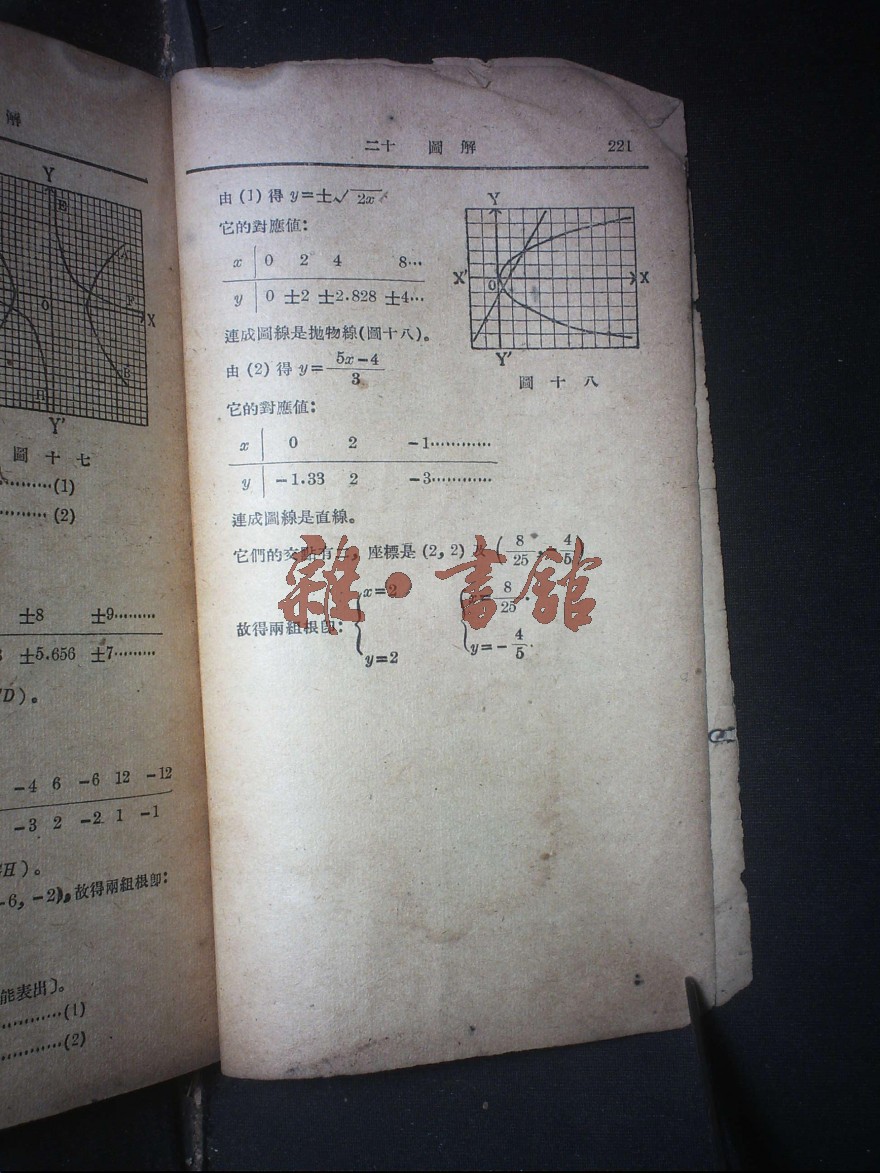 解
Y
B
A
0
F
X
B
D
Y'
圖 十 七
………(1)
………(2)
±8 ±9………
±5.656 ±7………
D)。
-4 6 -6 12 -12
-3 2 -2 1 -1
H)。
-6, -2)。故得兩組根卽:
能表出〕。
…………(1)
…………(2)
二十 圖 解 221
由 (1) 得 y=±√2x
它的對應値:
x 0 2 4 8…
y 0 ±2 ±2.828 ±4…
連成圖線是拋物線(圖十八)。
Y
X' 0 X
Y'
圖 十 八
由 (2) 得 y=(5x-4)/3
它的對應値:
x 0 2 -1…………
y -1.33 2 -3…………
連成圖線是直線。
它們的交點有二, 座標是 (2, 2) 及 (8/25, -4/5)
故得兩組根卽: { x=2 y=2 { x=8/25. y=-4/5.
雜·書館